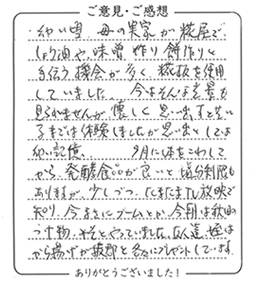 ご意見・ご感想
幼い頃 母の実家が 糀屋で
しょう油や、味噌 作り 餅作りと
手伝う機会が多く、糀板を使用
していました。 今はそんな光景も
見られませんが 懐しく 思います
までは体験しましたが思い出としては
幼い記憶。 9月に体をこわして
から、発酵食品が良いと
ありますが、少しづつ、たまたまTV放映で
知り、今まさにブームとか、今朝は秋田の
つけ物、 やっていました。
から揚げが プレゼントしています。
ありがとうございました！